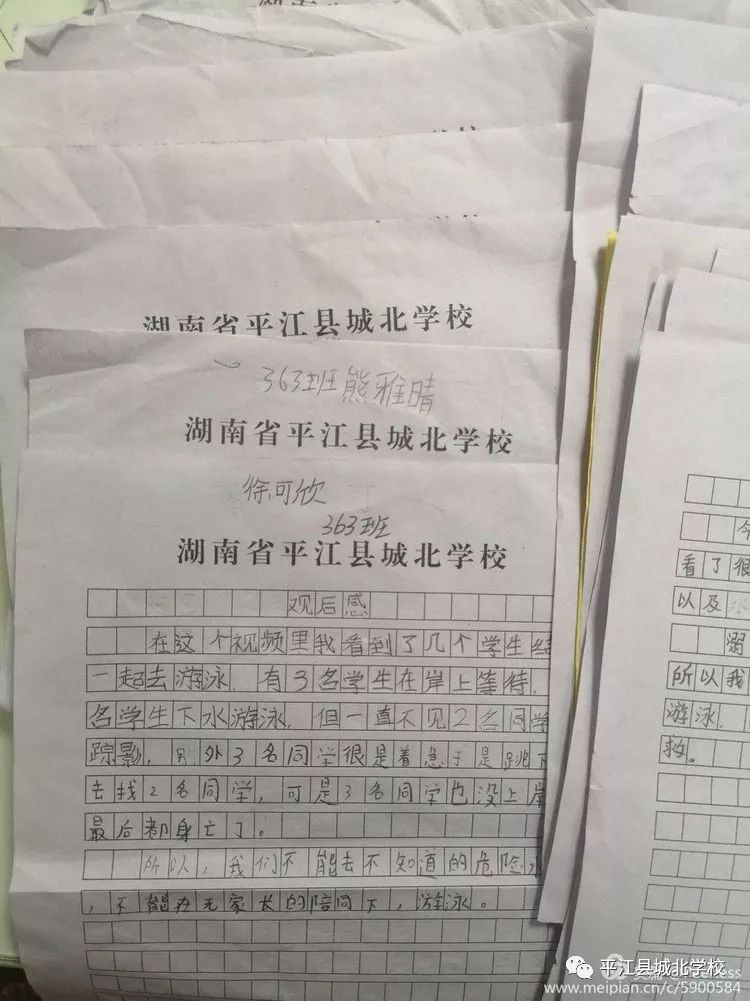 湖南省平江县城北学校
363班熊雅晴
湖南省平江县城北学校
徐可欣
363班
湖南省平江县城北学校
观后感
在这个视频里我看到了几个学生结
一起去游泳,有3名学生在岸上等待,
名学生下水游泳,但一直不见2名同学
踪影,另外3名同学很是着急于是跳下
去找2名同学,可是3名同学也没上岸
最后都身亡了。
所以,我们不能去不知道的危险水
,不能在无家长的陪同下,游泳。
今
看了很
以及
溺
所以我
游泳,
救。
平江县城北学校
www.meipian.cn/c/5900584